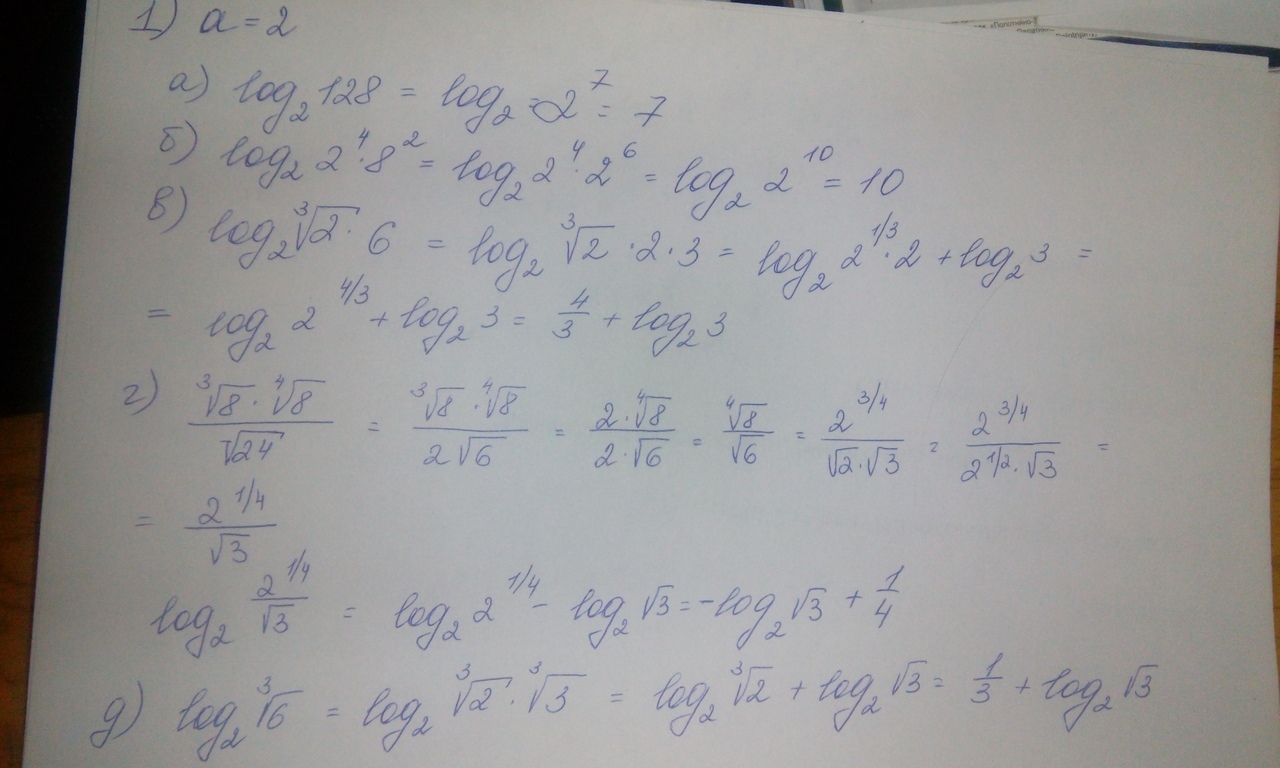 1) a = 2
а) log₂ 128 = log₂ = 2⁷ = 7
б) log₂ 2⁴·8² = log₂ 2⁴·2⁶ = log₂ 2¹⁰ = 10
в) log₂ ∛2 · 6 = log₂ ∛2 · 2 · 3 = log₂ 2^(1/3) · 2 + log₂ 3 =
= log₂ 2^(4/3) + log₂ 3 = 4/3 + log₂ 3
г) (∛8 · ∜8)/√24 = (∛8 · ∜8)/(2√6) = (2·∜8)/(2·√6) = ∜8/√6 = 2^(3/4)/(√2·√3) = 2^(3/4)/(2^(1/2)·√3) =
= 2^(1/4)/√3
log₂ 2^(1/4)/√3 = log₂ 2^(1/4) - log₂ √3 = -log₂ √3 + 1/4
д) log₂ ∛6 = log₂ ∛2 · ∛3 = log₂ ∛2 + log₂ √3 = 1/3 + log₂ √3